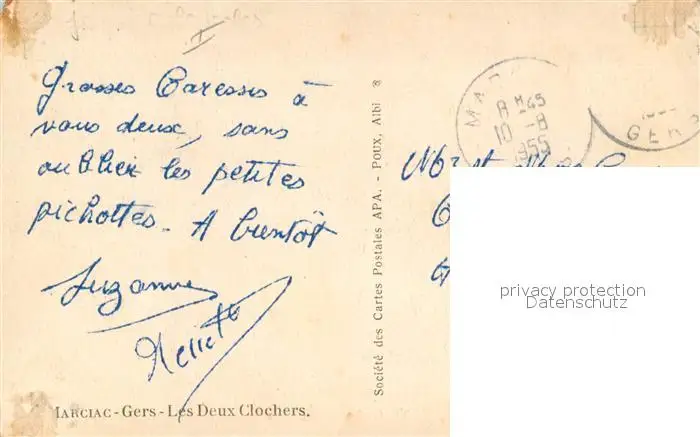 Grosses Caresses à
vous deux, sans
oublier les petites
pichottes. A bientôt
Suzanne
MARCIAC - Gers - Les Deux Clochers.
Société des Cartes Postales APA. - Poux, Albi ®
MA
8 H 45
10 - 8
1955
GERS
privacy protection
Datenschutz